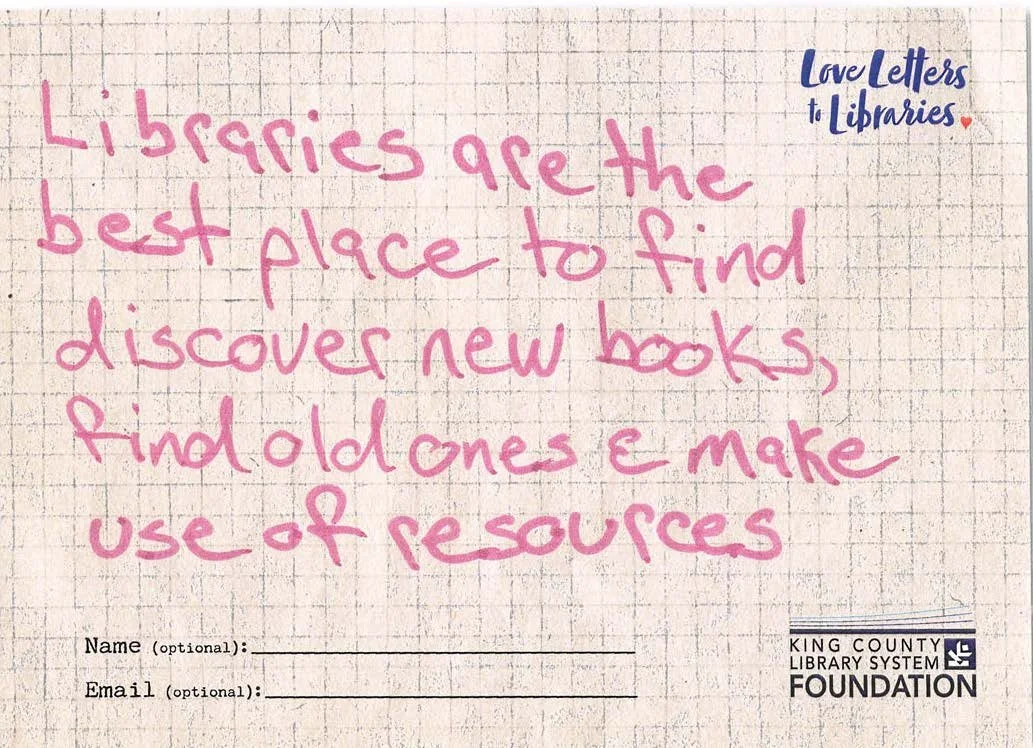 Love Letters
to Libraries
Libraries are the
best place to find
discover new books,
find old ones & make
use of resources
Name (optional):
Email (optional):
KING COUNTY
LIBRARY SYSTEM
FOUNDATION